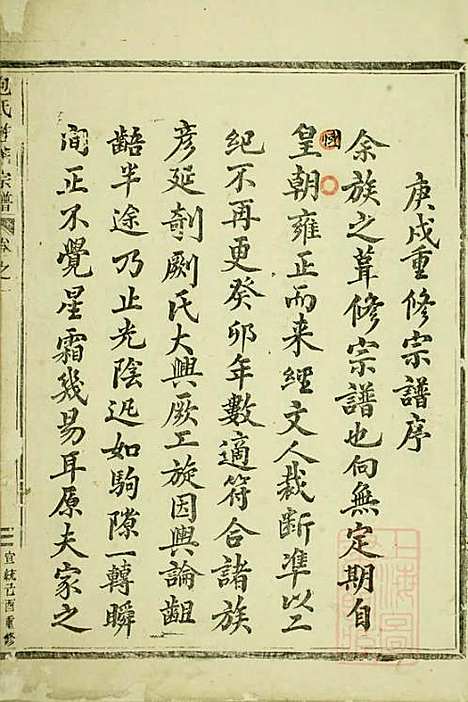 庚戌重修宗譜序
余族之葺修宗譜也向無定期自
皇朝雍正而来經文人裁斷準以二
紀不再更癸卯年數適符合諸族
彦延剞劂氏大興厥工旋因輿論齟
齬半途乃止光陰迅如駒隙一轉瞬
间正不覺星霜幾易耳原夫家之
包氏 宗譜 卷之一
宣統己酉重修